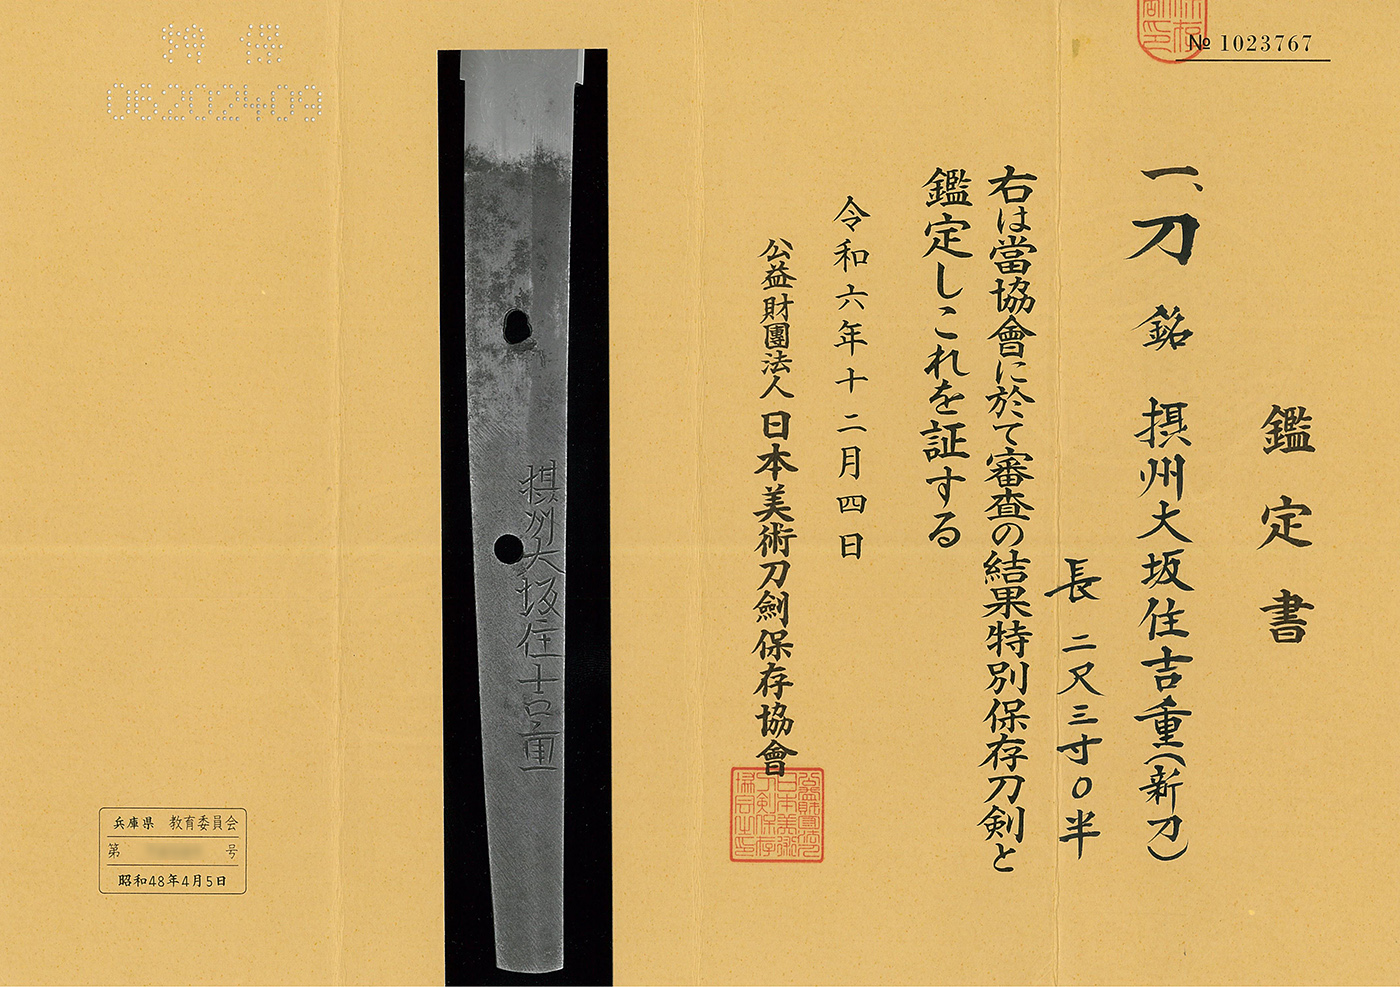 № 1023767
鑑定書
一、刀 銘 摂州大坂住吉重(新刀)
長 二尺三寸〇半
右は當協會に於て審査の結果特別保存刀剣と
鑑定しこれを証する
令和六年十二月四日
公益財團法人 日本美術刀劍保存協會
摂州大坂住吉重
06202409
兵庫県 教育委員会
第 号
昭和48年4月5日